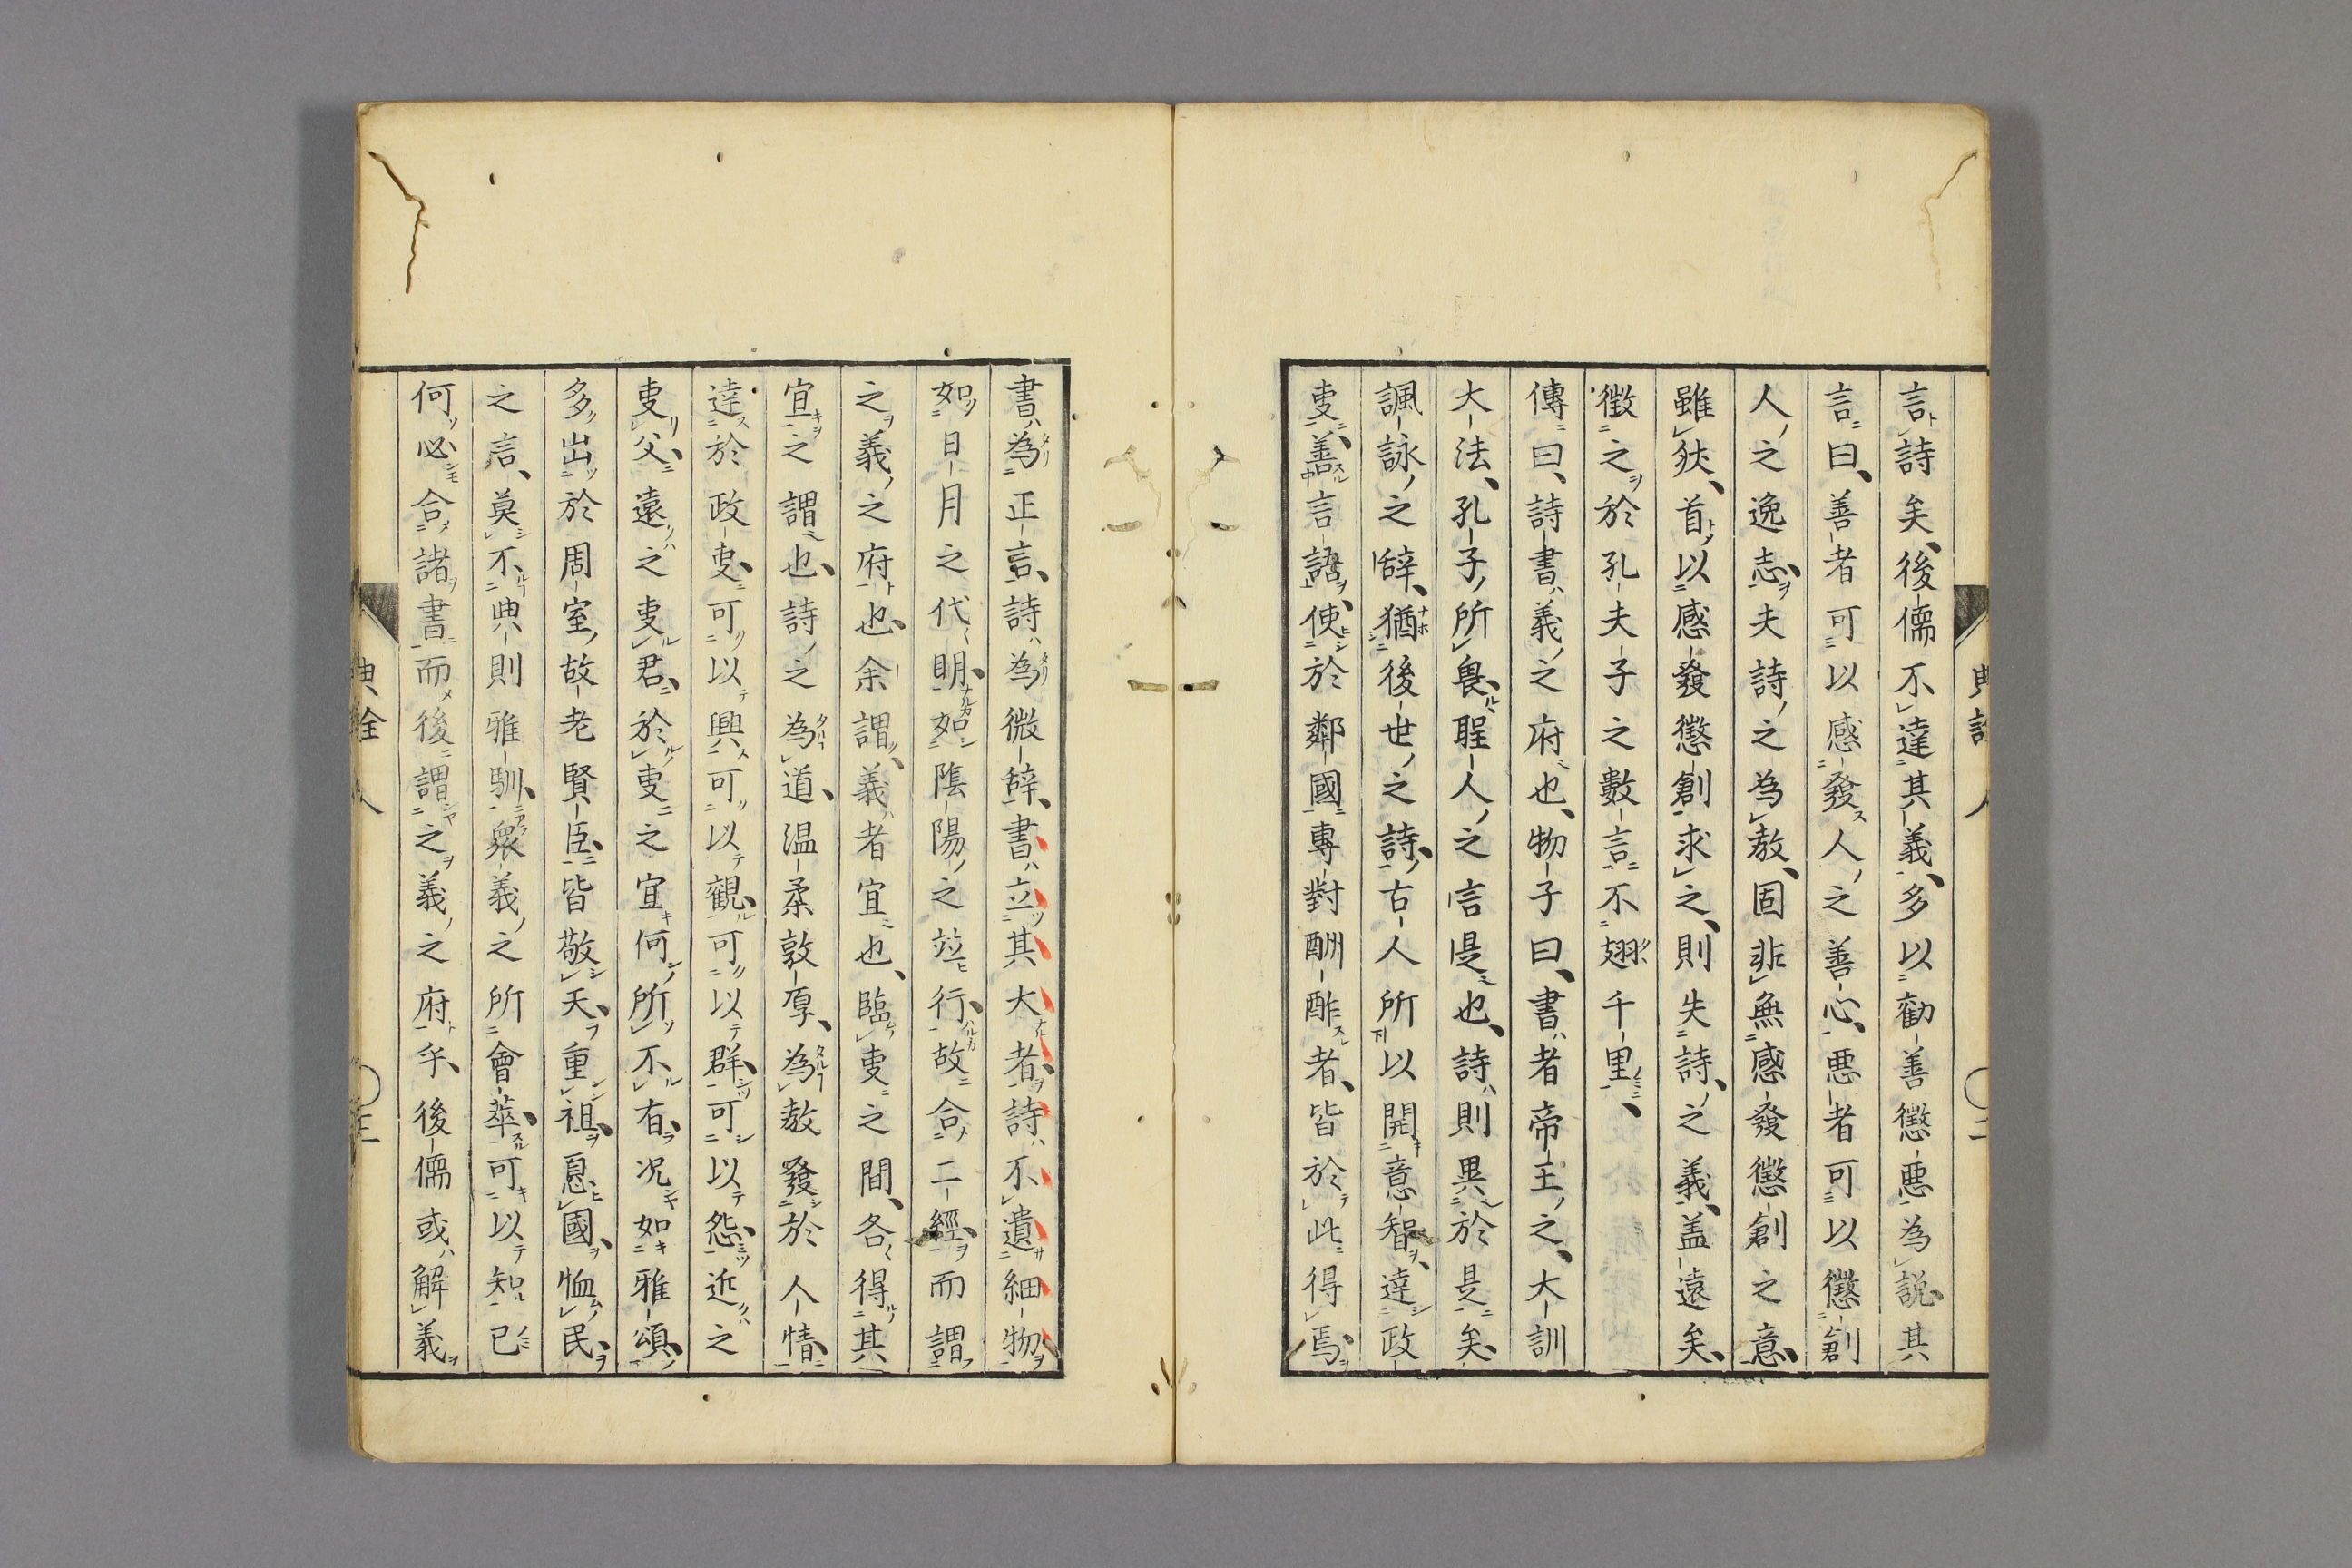 言詩矣後儒不達其義多以勸善懲悪為説其
言曰善者可以感發人之善心悪者可以懲創
人之逸志夫詩之為教固非無感發懲創之意
雖狀首以感發懲創求之則失詩之義盖遠矣
徴之於孔夫子之數言不翅千里
傳曰詩書義之府也物子曰書者帝王之大訓
大法孔子所畏聖人之言是也詩則異於是矣
諷詠之辝猶後世之詩古人所以開意智達政
叓善言語使於鄰國專對酬酢者皆於此得焉
書為正言詩為微辝書立其大者詩不遺細物
如日月之代明如陰陽之竝行故合二經而謂
之義之府也余謂義者宜也臨叓之間各得其
宜之謂也詩之為道温柔敦厚為教發於人情
達於政叓可以興可以觀可以群可以怨近之
叓父遠之叓君於叓之宜何所不有况如雅頌
多出於周室故老賢臣皆敬天重祖恩國恤民
之言莫不典則雅馴衆義之所會萃可以知已
何必合諸書而後謂之義之府乎後儒或解義